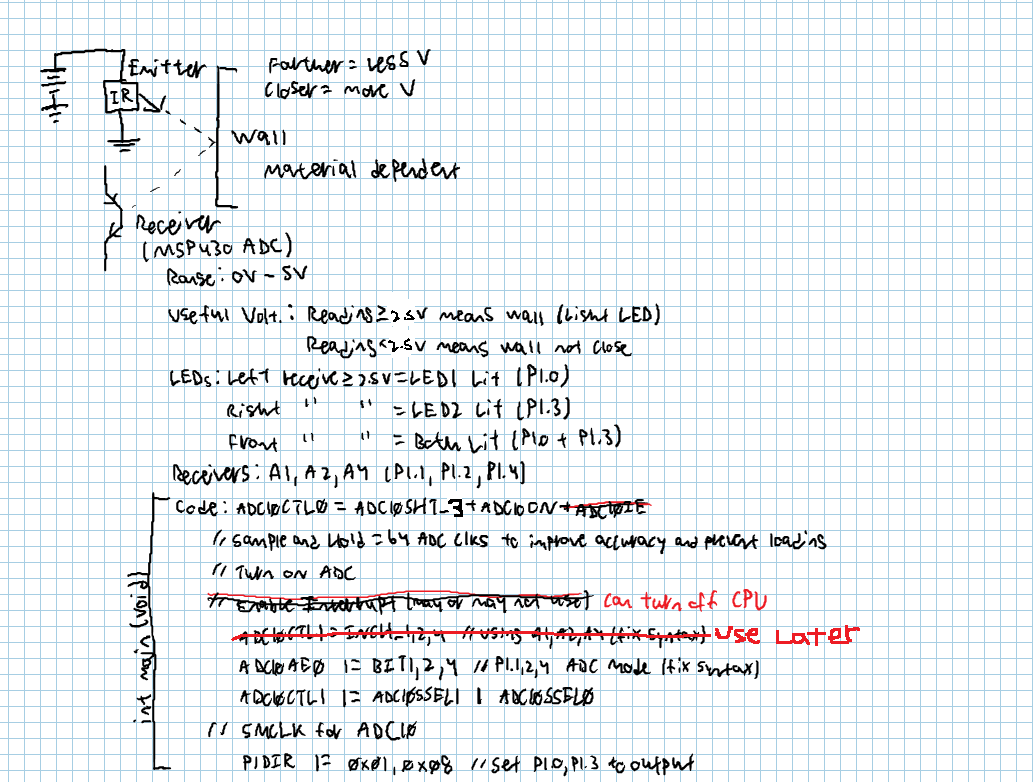 Emitter
Farther = Less V
Closer = more V
IR
Wall
Material dependent
Receiver
(MSP430 ADC)
Range: 0V - 5V
Useful Volt.: Reading ≥ 2.5V means wall (Light LED)
Reading < 2.5V means wall not close
LEDs: Left receive ≥ 2.5V = LED1 Lit (P1.0)
Right " " = LED2 Lit (P1.3)
Front " " = Both Lit (P1.0 + P1.3)
Receivers: A1, A2, A4 (P1.1, P1.2, P1.4)
Code: ADC10CTL0 = ADC10SHT_3 + ADC10ON + ADC10IE
// Sample and Hold = 64 ADC Clks to improve accuracy and prevent loading
// Turn on ADC
// Enable Interrupt (may or may not use) Can turn off CPU
ADC10CTL1 = INCH_1,2,4 // Using A1, A2, A4 (fix syntax) USE LATER
ADC10AE0 |= BIT1,2,4 // P1.1,2,4 ADC mode (fix syntax)
ADC10CTL1 |= ADC10SSEL1 | ADC10SSEL0
// SMCLK for ADC10
P1DIR |= 0x01, 0x08 // Set P1.0, P1.3 to output
int main(void)